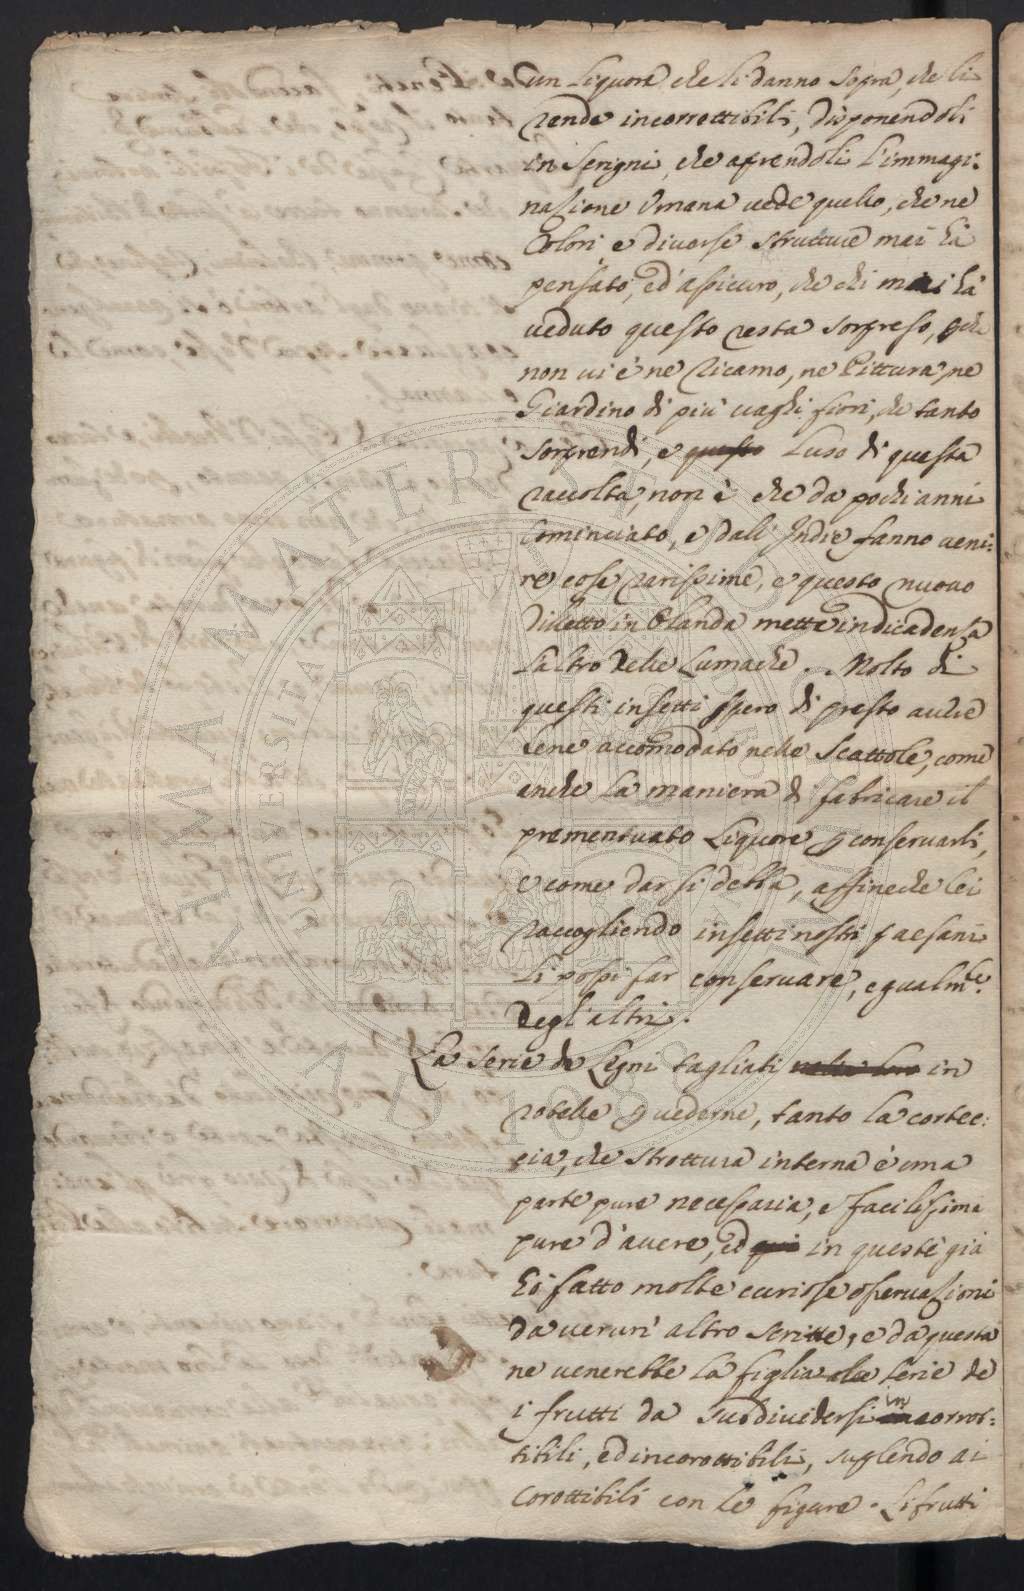 un Liquore che li danno sopra, che li
rende incorrottibili, disponendoli
in Serigni, che aprendoli l'immagi:
nasione Umana vede quello, che ne
Colori e diverse strutture mai hà
pensato, ed' assicuro, che chi mai hà
veduto questo resta sorpreso, che
non vi è ne Ricamo, ne Pittura, ne
Giardino di più vaghi fiori, che tanto
sorprendi, e questo Luso di questa
raccolta, non è che da pochi anni
Cominciato, e dall' Indie fanno veni:
re cose rarissime, e questo nuovo
diletto in Olanda mette in dicadensa
L'altro delle Lumache. Molto di
questi insetti spero di presto avere
bene accomodato nelle Scattole, come
anche la maniera di fabricare il
prementvato Liquore p conservarli,
e come dar si debba, affineche lei
raccogliendo insetti nostri paesani
li possi far conservare, egualm.te
degl'altri.
La serie de Legni tagliati nella loro in
rotelle p vederne, tanto la cortec:
cia, che struttura interna è una
parte pure necessaria, e facilissima
pure d'avere, ed qui in queste già
hò fatto molte curiose osservasioni
da verun' altro scritte, e da questa
ne venerebbe la figlia ala serie de
i frutti da suddividersi in corrot:
tibili, ed incorottibili, suplendo ai
Corottibili con le figure. Li frutti
ALMA MATER STUDIORUM
UNIVERSITÀ DI BOLOGNA
A.D. 1088